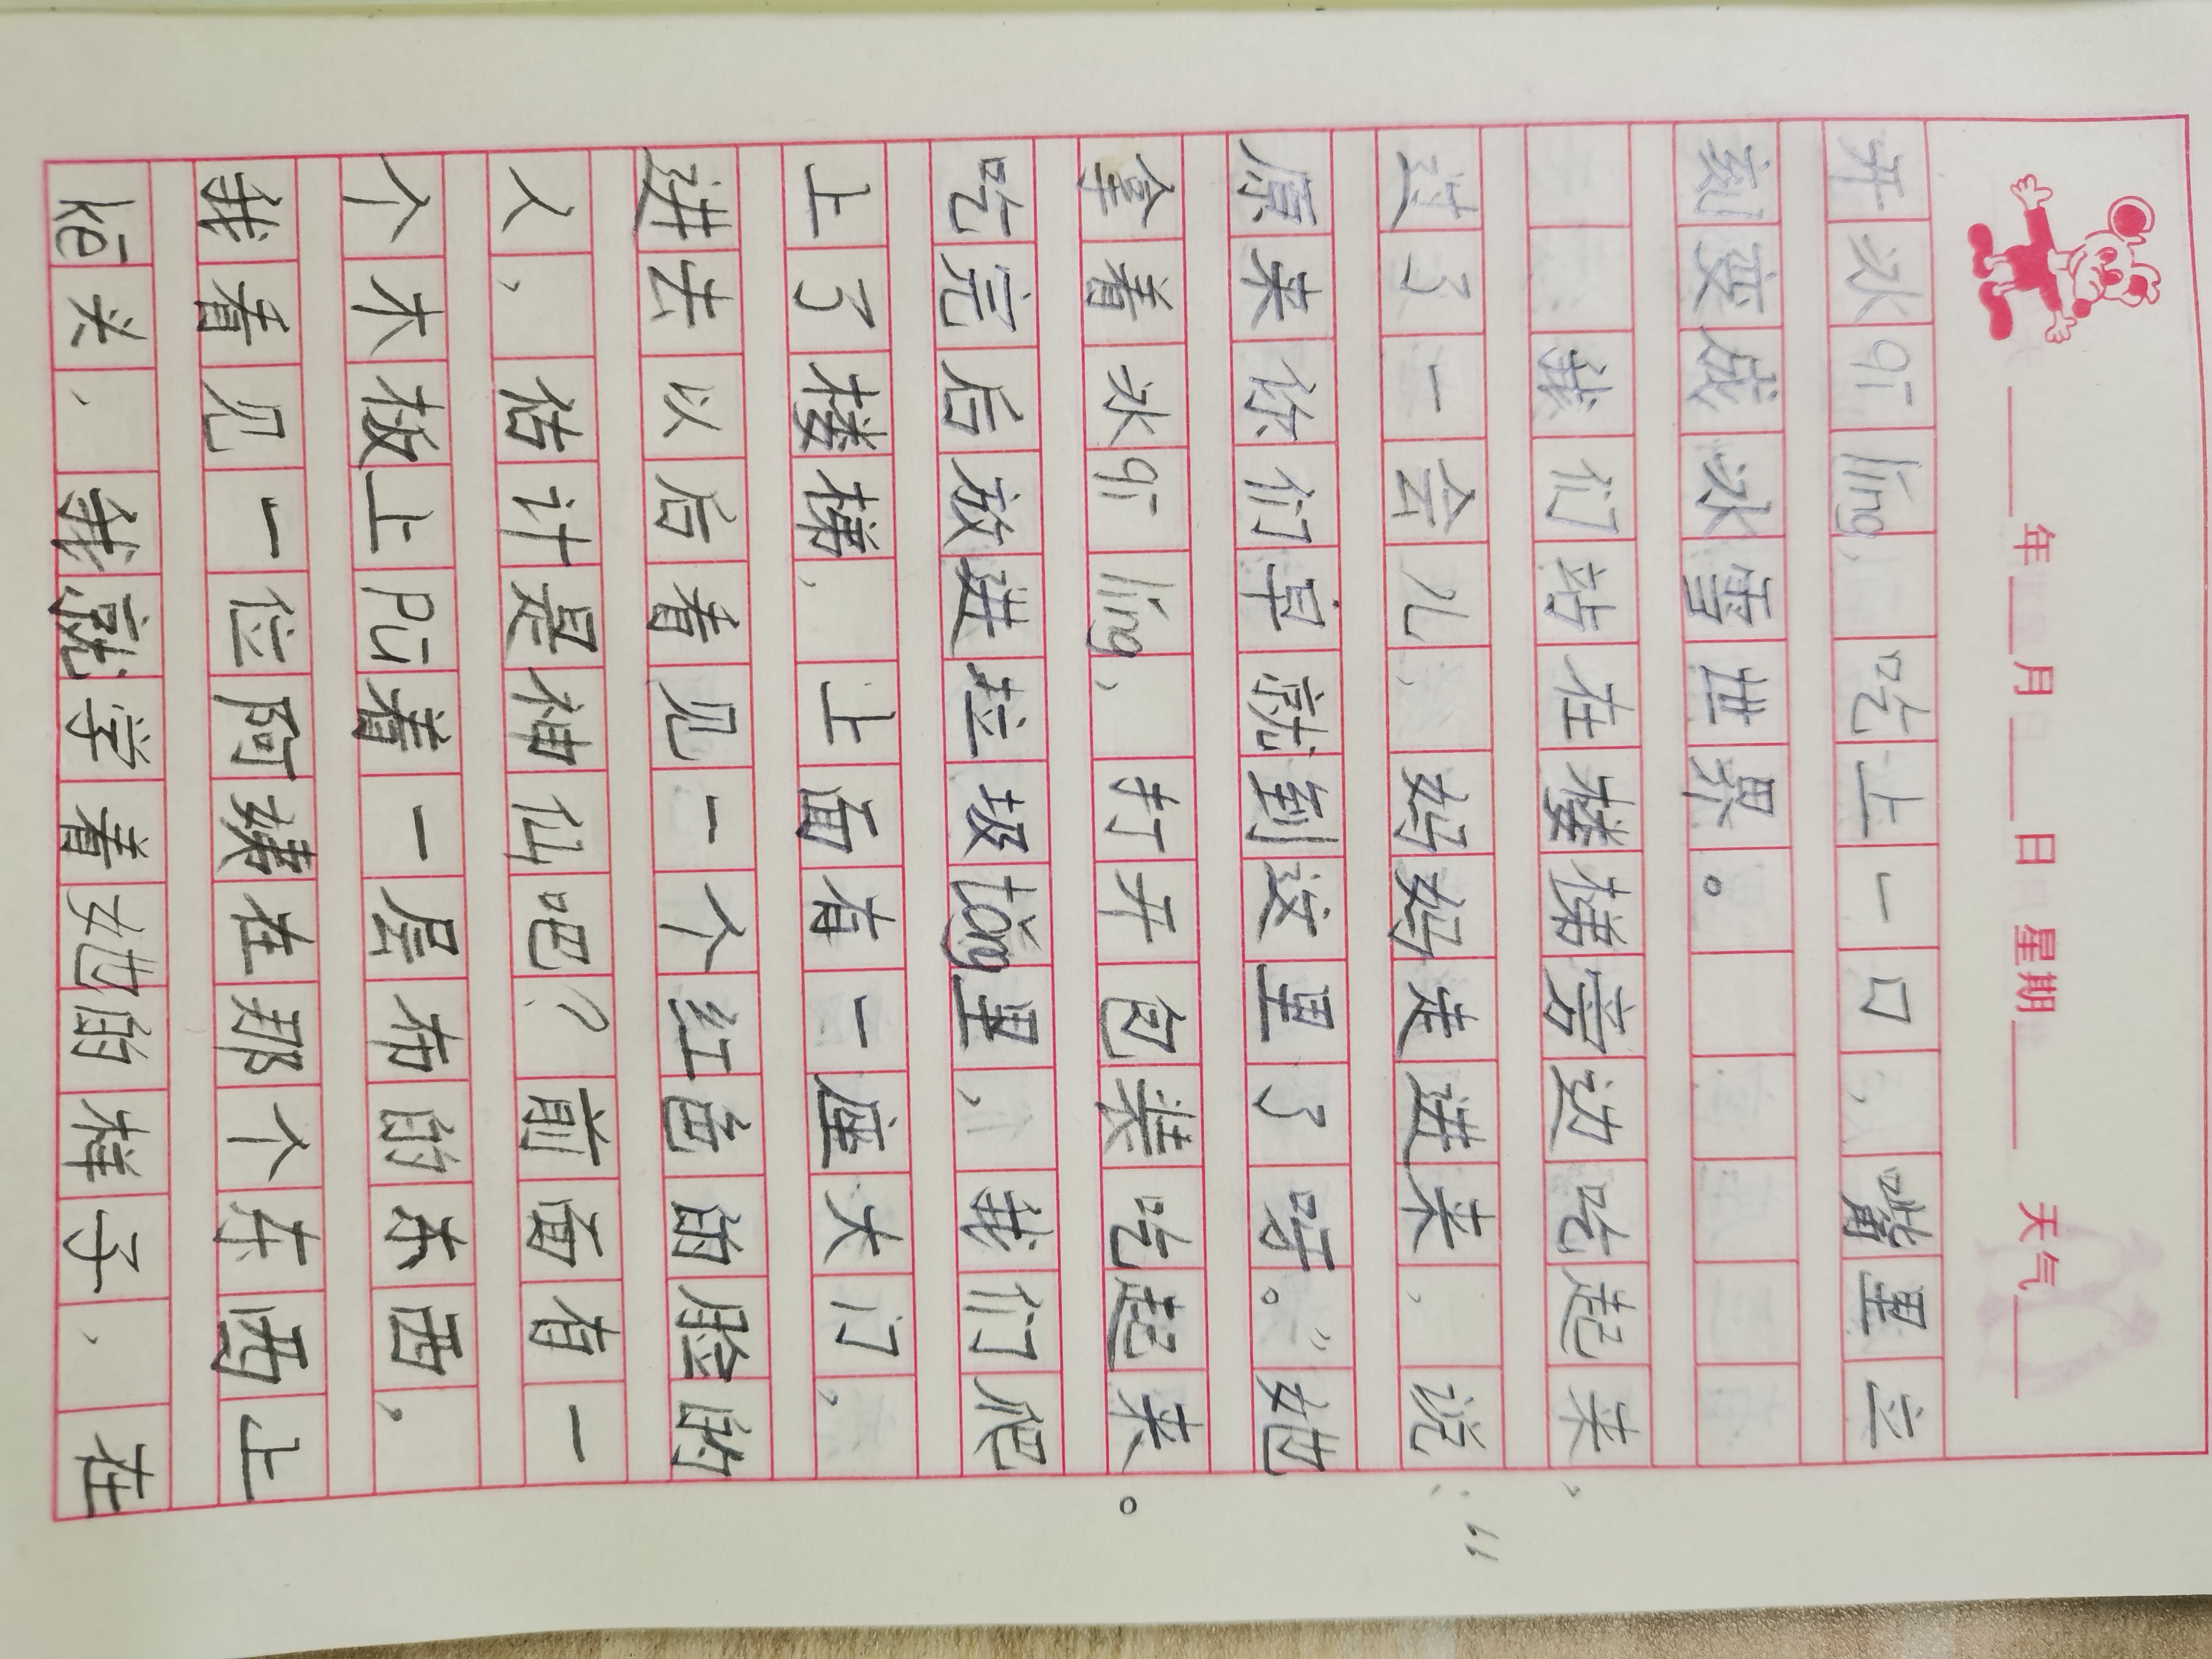 年 月 日 星期 天气
开冰qí líng，吃上一口，嘴里立
刻变成冰雪世界。
我们站在楼梯旁边吃起来，
过了一会儿，妈妈走进来，说：“
原来你们早就到这里了呀。”她
拿着冰qí líng，打开包装吃起来。
吃完后放进垃圾tǒng里，我们爬
上了楼梯，上面有一座大门，
进去以后看见一个红色的脸的
人，估计是神仙吧？前面有一
个木板上pū着一层布的东西，
我看见一位阿姨在那个东西上
kē头，我就学着她的样子，在